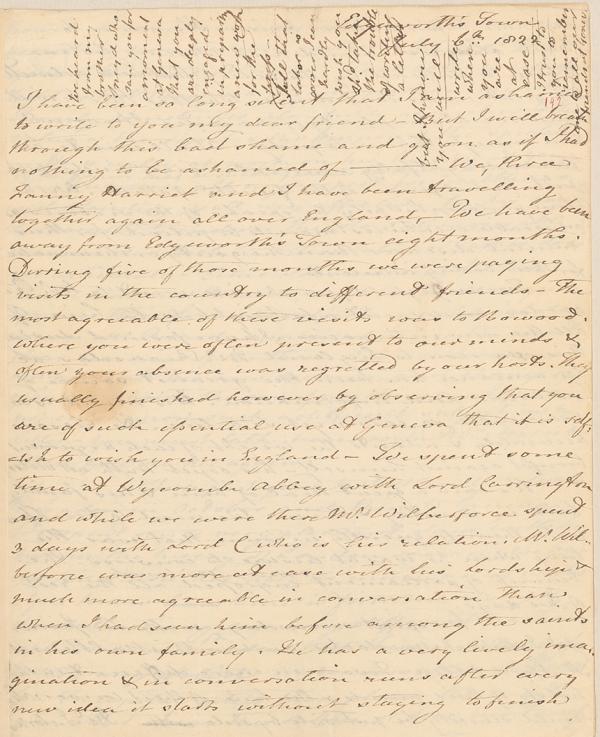 Edgeworth's Town
July 6th 1822
I have been so long silent that I am ashamed
to write to you my dear friend - But I will break
through this bad shame and go on as if I had
nothing to be ashamed of ——— We, three
Fanny Harriet and I have been travelling
together again all over England, - We have been
away from Edgeworth's Town eight months.
During five of those months we were paying
visits in the country to different friends - The
most agreeable of these visits was to Bowood.
where you were often present to our minds &
often your absence was regretted by our hosts. They
usually finished however by observing that you
are of such essential use at Geneva that it is self:
=ish to wish you in England - We spent some
time at Wycombe Abbey with Lord Carrington
and while we were there Mr. Wilberforce spent
3 days with Lord C who is his relation. Mr. Wil-
berforce was more at ease with his Lordship &
much more agreeable in conversation than
when I had seen him before among the saints
in his own family. He has a very lively ima-
gination & in conversation runs after every
new idea it starts without staying to finish
We heard
from my
brother
Sneyd who
saw you for
a moment
at Geneva
that you
are deeply
engaged
in preparing
a new work
for the
press
Tell
over
hardly
wish you
to take
the trouble
of writing
a letter
but I know
you will
write
when
you
are
at
ease
I trust to
you to
remember
an old &